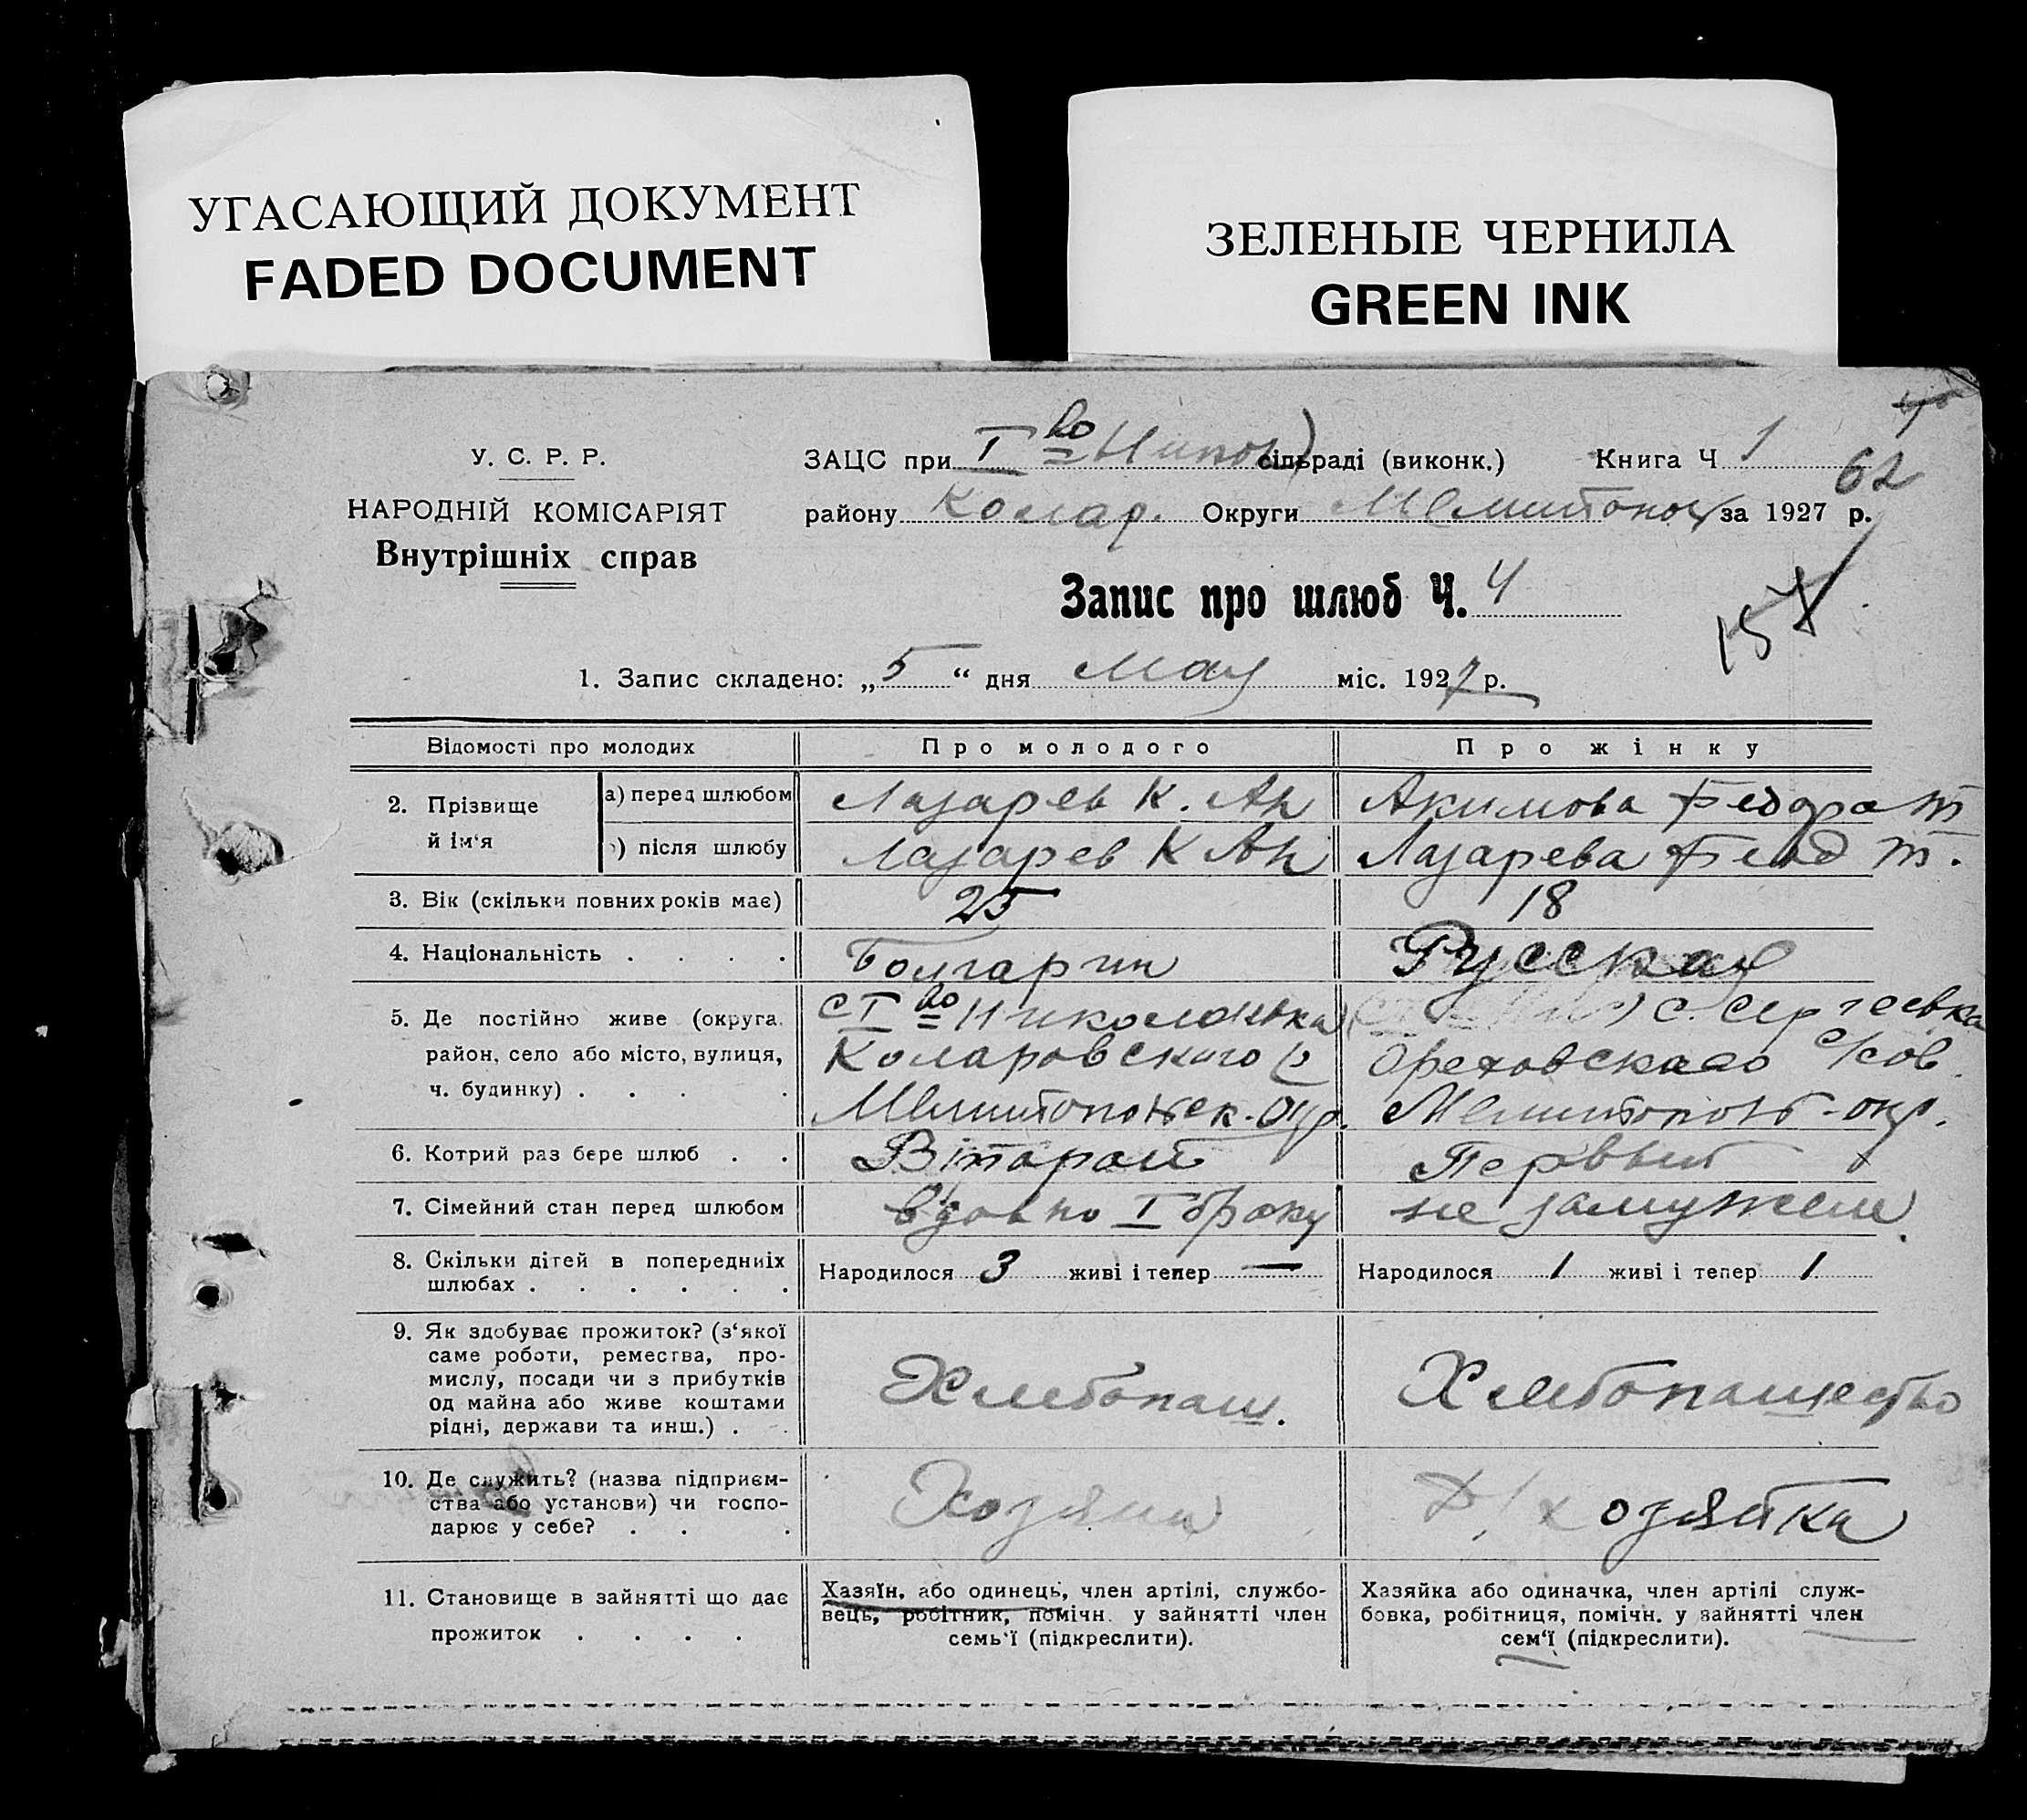 УГАСАЮЩИЙ ДОКУМЕНТ
FADED DOCUMENT
ЗЕЛЕНЫЕ ЧЕРНИЛА
GREEN INK
У. С. Р. Р.
НАРОДНІЙ КОМІСАРІЯТ
Внутрішніх справ
ЗАЦС при I во Никол) сільраді (виконк.) Книга Ч 1
62
району Колар. Округи Мелитопол за 1927 р.
Запис про шлюб Ч. 4
157
1. Запис складено: „5“ дня Мая міс. 1927 р.
Відомості про молодих Про молодого Про жінку
2. Прізвище й ім‘я а) перед шлюбом Лазарев К. Ан Акимова Феодра Т
) після шлюбу Лазарев К Ан Лазарева Феод Т.
3. Вік (скільки повних років має) 25 18
4. Національність . . . . Болгарин Русская
5. Де постійно живе (округа, С I во Николаевка с. Сергеевка
район, село або місто, вулиця, Коларовского р Ореховскаго
ч. будинку) . . . . Мелитопольск. окр. Мелитопол - окр.
6. Котрий раз бере шлюб . . Второй Первый
7. Сімейний стан перед шлюбом вдов по I браку не замужем
8. Скільки дітей в попередніх Народилося 3 живі і тепер — Народилося 1 живі і тепер 1
шлюбах . . . . . .
9. Як здобуває прожиток? (з‘якої
саме роботи, ремества, про-
мислу, посади чи з прибутків Хлебопаш. Хлебопашество
од майна або живе коштами
рідні, держави та инш.) . .
10. Де служить? (назва підприєм-
ства або установи) чи госпо- Хозяин Д/хозяйка
дарює у себе? . . .
11. Становище в зайнятті що дає Хазяїн, або одинець, член артілі, службо- Хазяйка або одиначка, член артілі служ-
вець, робітник, помічн. у зайнятті член бовка, робітниця, помічн. у зайнятті член
прожиток . . . . семь‘ї (підкреслити). сем‘ї (підкреслити).